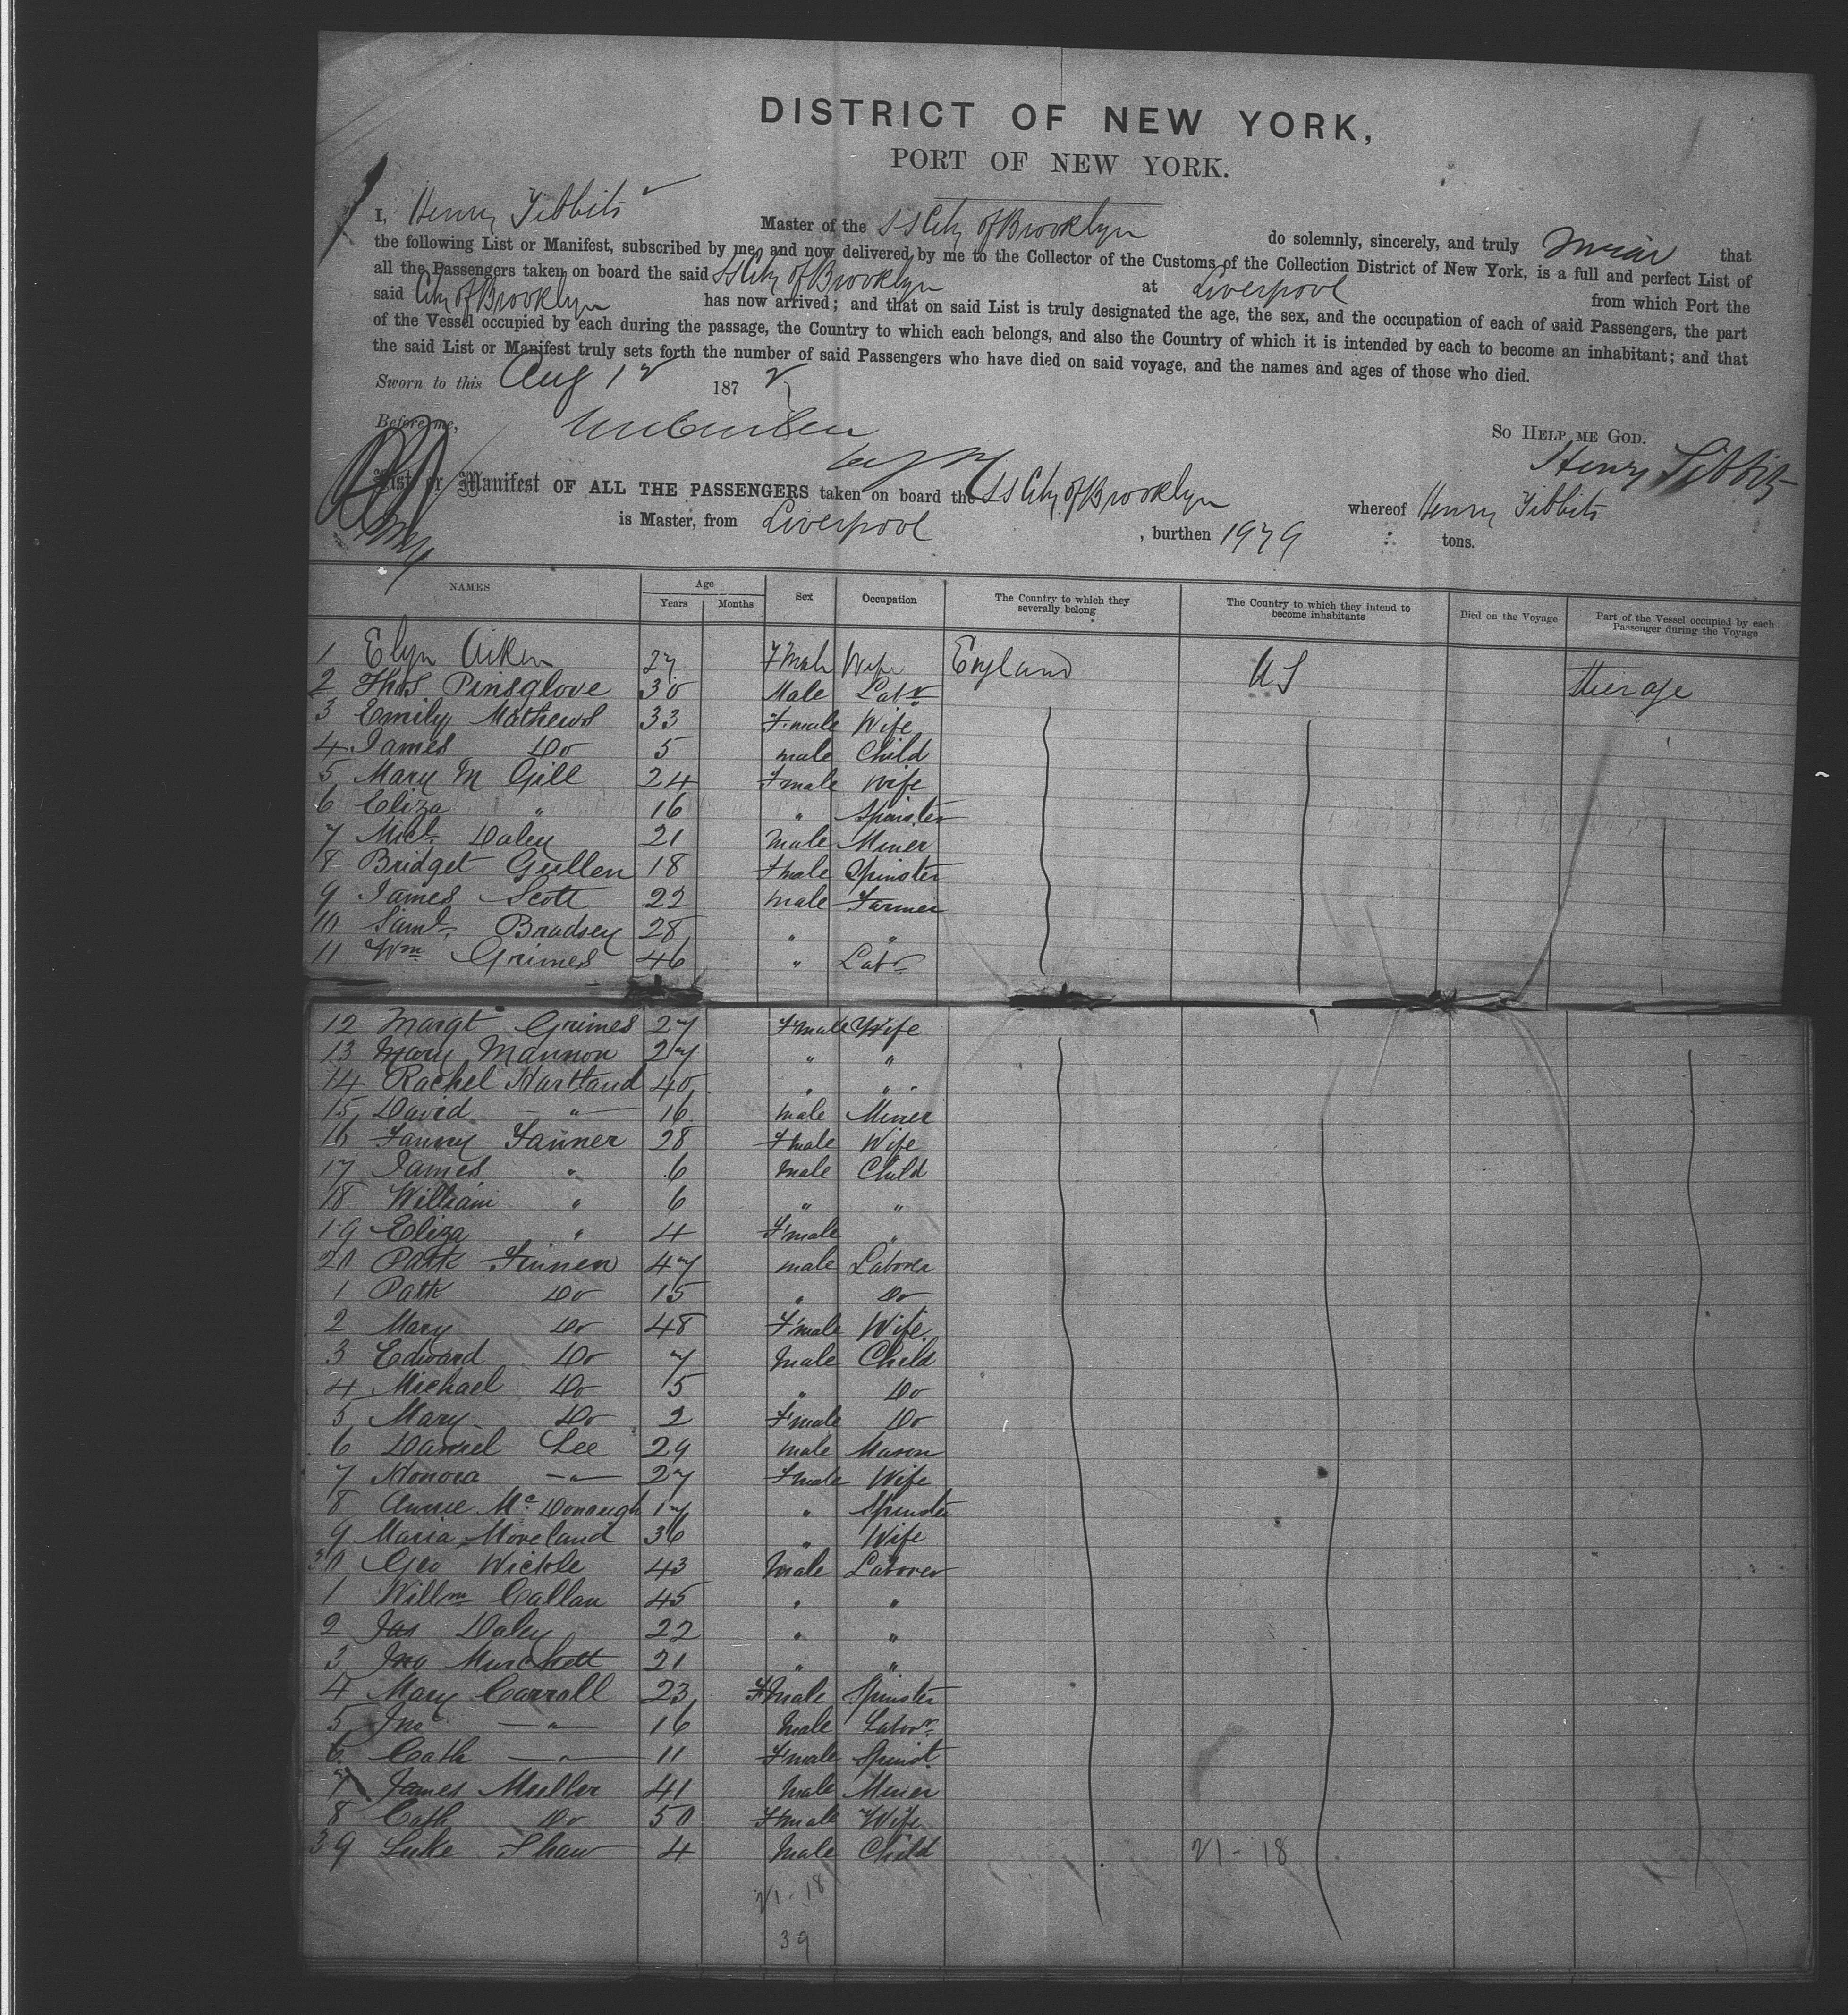 DISTRICT OF NEW YORK,
PORT OF NEW YORK.
I, Henry Tibbits Master of the SS City of Brooklyn do solemnly, sincerely, and truly swear that
the following List or Manifest, subscribed by me, and now delivered by me to the Collector of the Customs of the Collection District of New York, is a full and perfect List of
all the Passengers taken on board the said SS City of Brooklyn at Liverpool from which Port the
said City of Brooklyn has now arrived; and that on said List is truly designated the age, the sex, and the occupation of each of said Passengers, the part
of the Vessel occupied by each during the passage, the Country to which each belongs, and also the Country of which it is intended by each to become an inhabitant; and that
the said List or Manifest truly sets forth the number of said Passengers who have died on said voyage, and the names and ages of those who died.
Sworn to this Aug 12 1872
Before me,
So Help me God.
Henry Tibbits
List or Manifest OF ALL THE PASSENGERS taken on board the SS City of Brooklyn whereof Henry Tibbits
is Master, from Liverpool, burthen 1979 tons.
NAMES Age Years Months Sex Occupation The Country to which they severally belong The Country to which they intend to become inhabitants Died on the Voyage Part of the Vessel occupied by each Passenger during the Voyage
1 Elyn Aiken 27 Fmale Wife England US Steerage
2 Thos. Pinsglove 30 Male Labr
3 Emily Mathews 33 Fmale Wife
4 James Do 5 male Child
5 Mary M Gill 24 Fmale Wife
6 Eliza " 16 " Spinster
7 Michl Daley 21 male Miner
8 Bridget Gullen 18 Fmale Spinster
9 James Scott 22 male Farmer
10 Saml. Bradsey 28 " "
11 Wm Grimes 46 " Labr
12 Margt Grimes 27 Fmale Wife
13 Mary Mannon 27 " "
14 Rachel Hartland 40 " "
15 David " 16 male Miner
16 Fanny Fanner 28 Fmale Wife
17 James " 6 male Child
18 William " 6 " "
19 Eliza " 4 Fmale "
20 Patk Finnen 47 male Laborer
1 Patk Do 15 " Do
2 Mary Do 48 Fmale Wife
3 Edward Do 7 Male Child
4 Michael Do 5 " Do
5 Mary Do 2 Fmale Do
6 Daniel Lee 29 male Mason
7 Honora " 27 Fmale Wife
8 Annie Mc Donaugh 17 " Spinster
9 Maria Moreland 36 " Wife
30 Geo Wickle 43 Male Laborer
1 Willm Callan 45 " "
2 Jas Daley 22 " "
3 Jno Murchett 21 " "
4 Mary Carrall 23 Fmale Spinster
5 Jno " 16 Male Labor
6 Cath " 11 Fmale Spinst.
7 James Mueller 41 Male Miner
8 Cath Do 50 Fmale Wife
39 Luke Shaw 4 Male Child 21 - 18
21 - 18
39